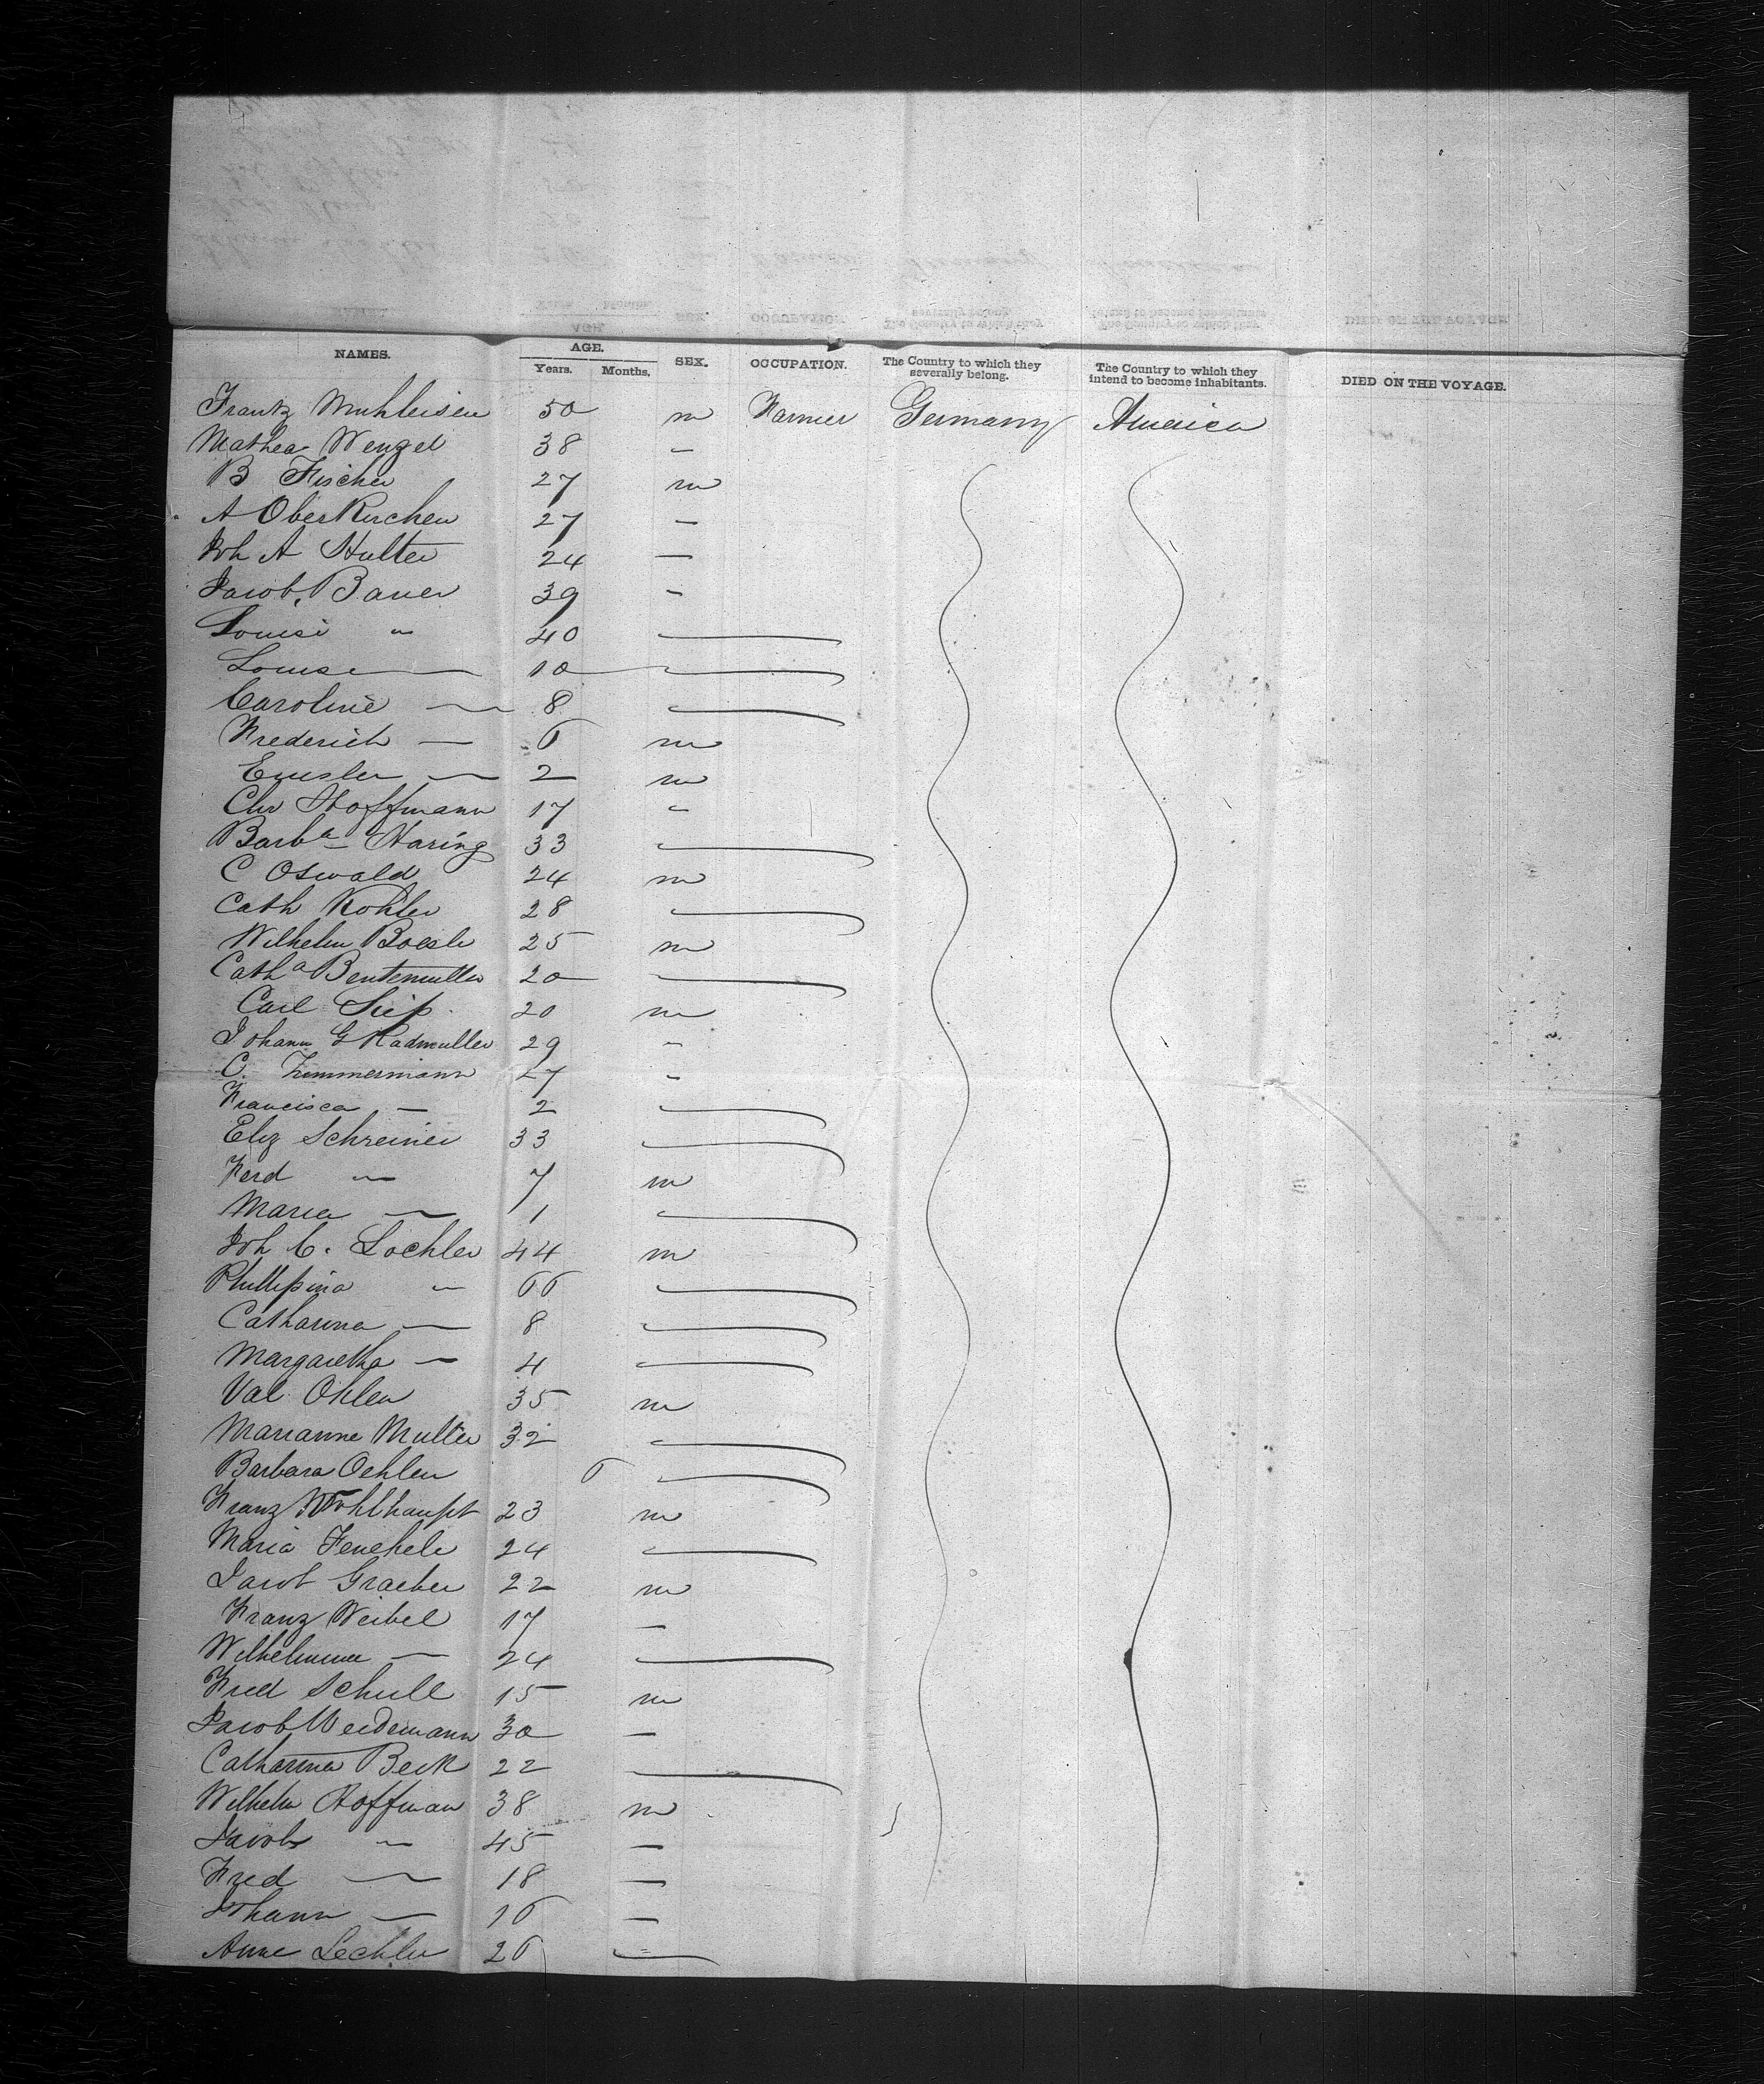 NAMES. AGE. Years. Months. SEX. OCCUPATION. The Country to which they severally belong. The Country to which they intend to become inhabitants. DIED ON THE VOYAGE.
Frantz Muhleisen 50 m Farmer Germany America
Mathea Wenzel 38 —
B Fischer 27 m
A Oberkirchen 27 —
Joh A Hulter 24 —
Jacob Bauer 39 —
Louisi " 40 —
Louise — 10 —
Caroline — 8 —
Frederich — 6 m
— 2 m
Chr Hoffmann 17 "
Barba Haring 33 —
C Oswald 24 m
Cath Kohler 28 —
Wilhelm Boesle 25 m
Catha Bentemuller 20 —
Carl 20 m
Johann G Radmuller 29 "
C. Zimmermann 27 -
Francisca — 2 —
Eliz Schreiner 33 —
Ferd — 7 m
Maria — 1 —
Joh C. Lochler 44 m
Phillipina " 66 —
Catharina — 8 —
Margaretha — 4 —
Val Ohlen 35 m
Marianne Muller 32 —
Barbara Oehlen 6 —
Franz Wohlhaupt 23 m
Maria 24 —
Jacob Graeber 22 m
Franz Weibel 17 —
Wilhelmine — 24 —
Fred Schull 15 m
Jacob Weidemann 30 —
Catharina Beck 22 —
Wilhelm Hoffman 38 m
Jacob " 45 —
Fred — 18 —
Johann — 16 —
Anne Lechler 26 —